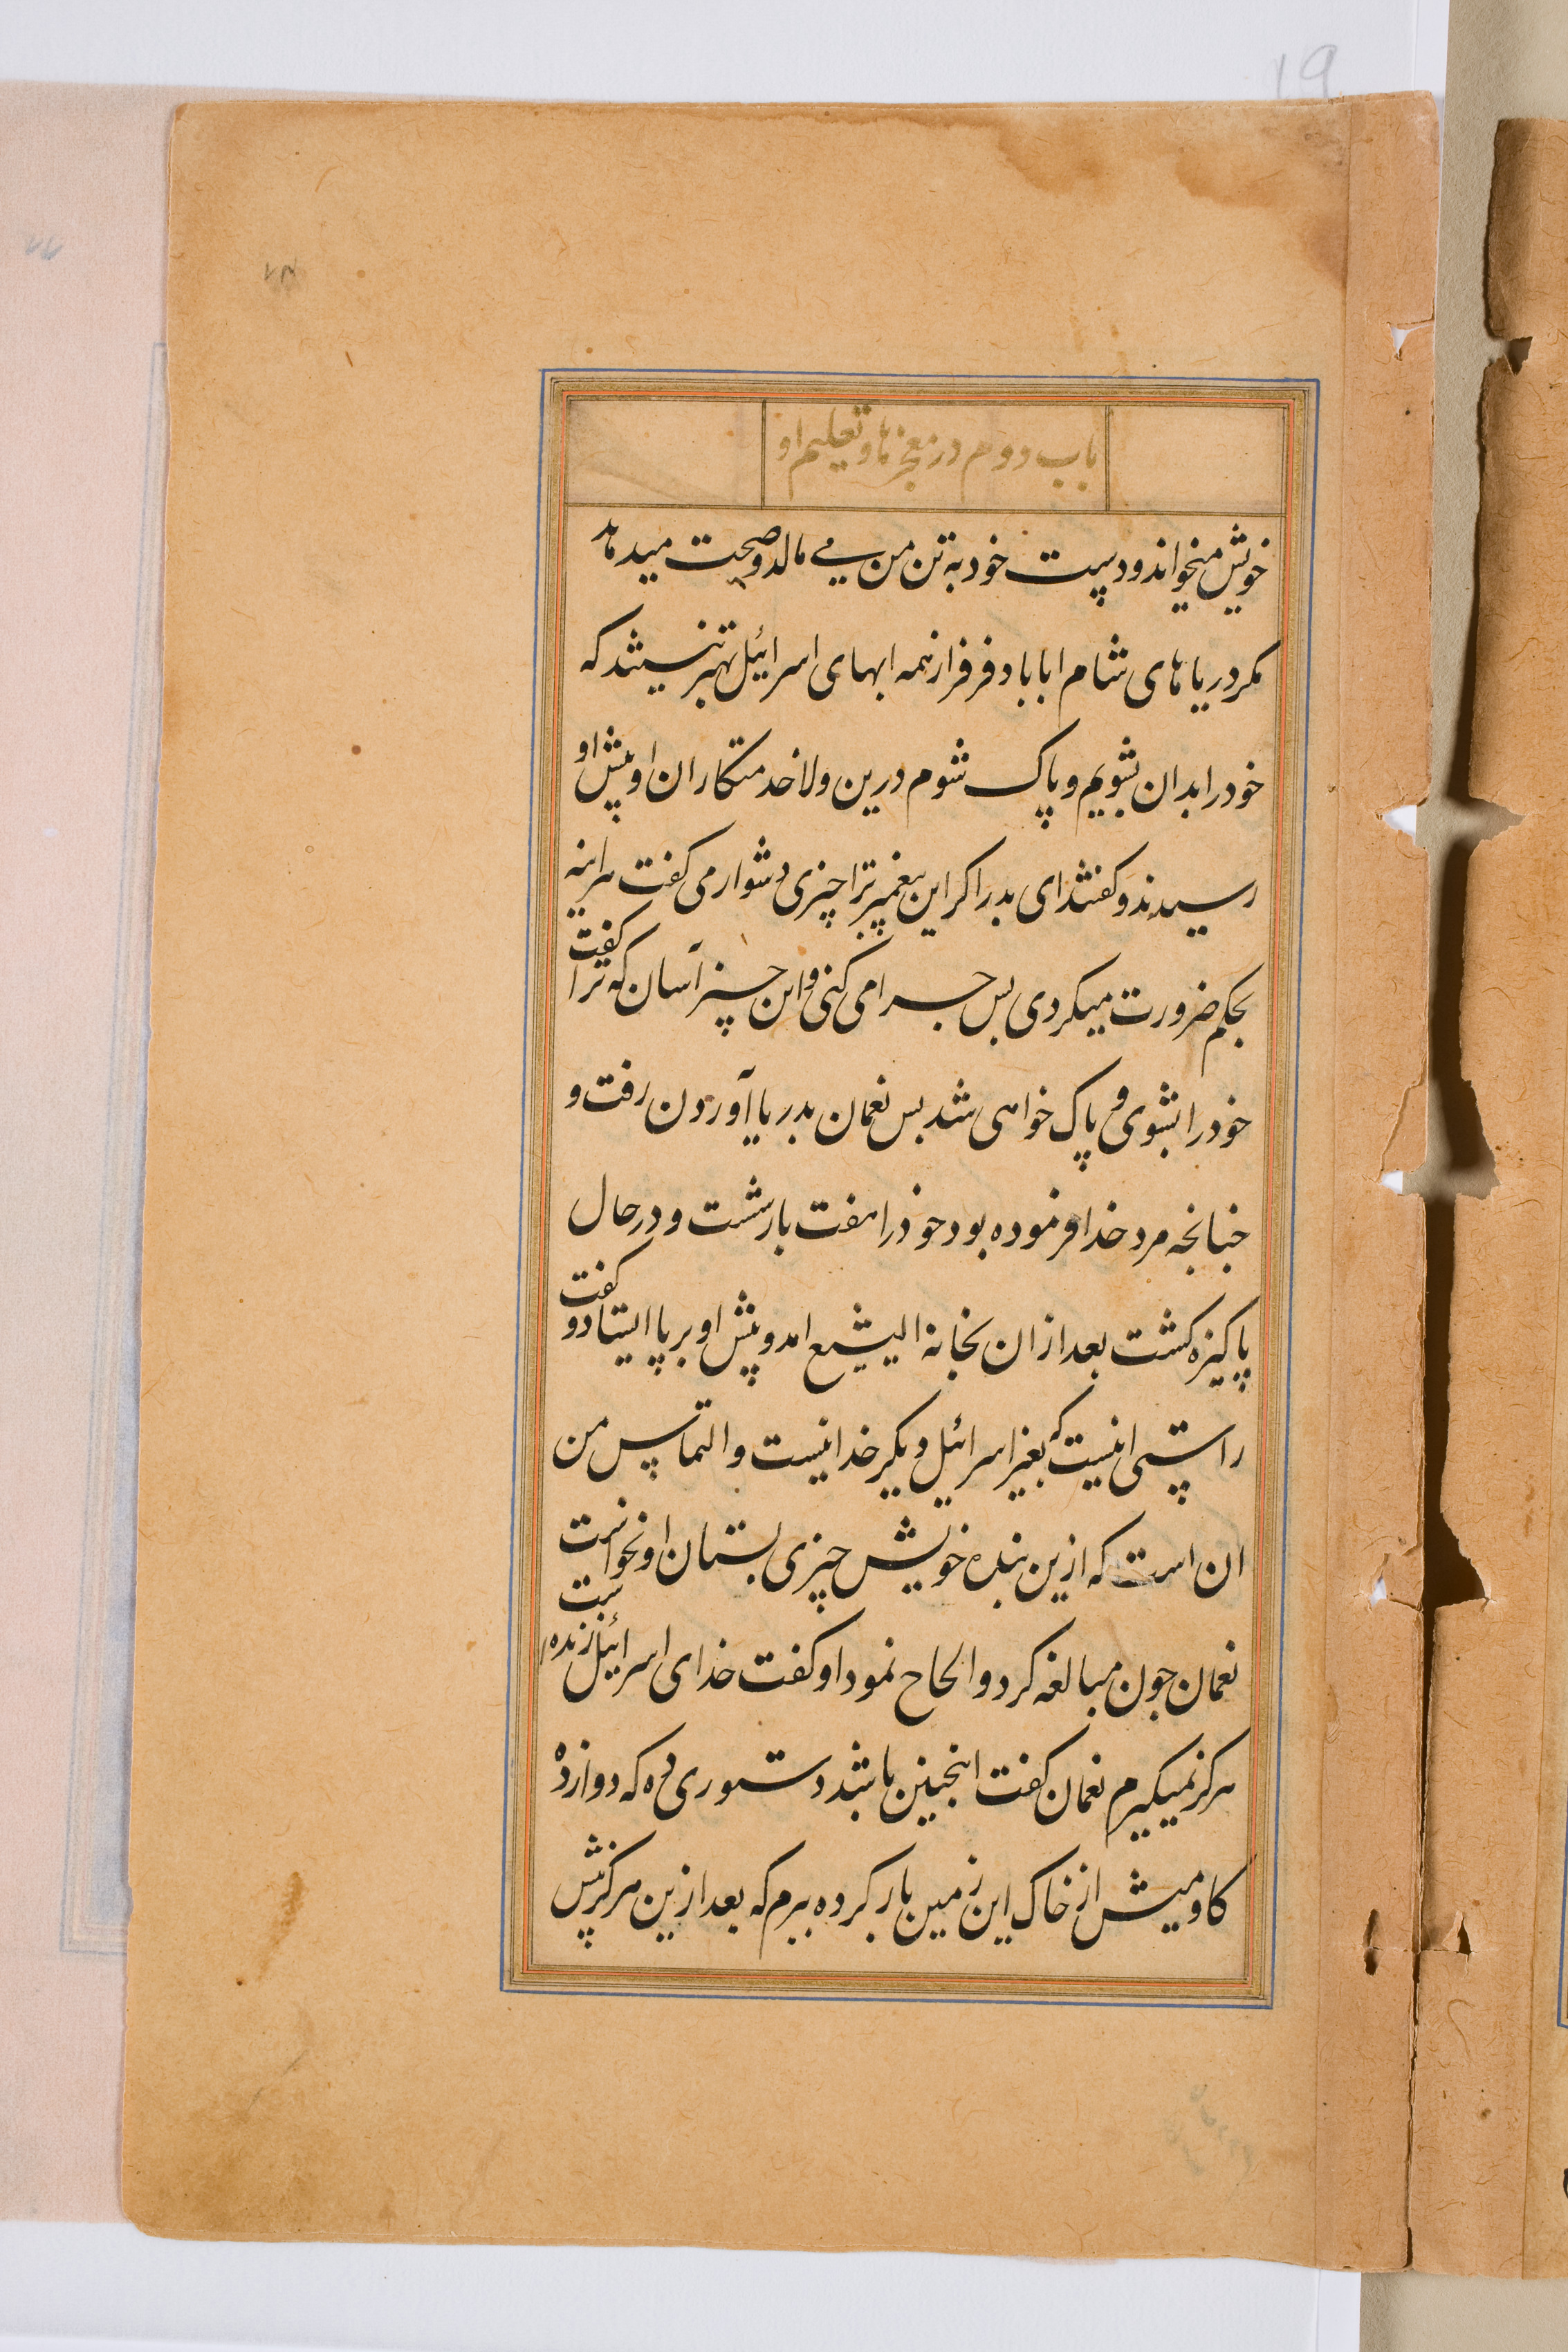 19
باب دوم در معجزها و تعلیم او
خویش میخواند و دست خود به تن من می مالد و صحت میدهد
مکر دریاهای شام ابابا و فرفر از همه ابهای اسرائیل بهتر نیستند که
خود را بدان بشویم و پاک شوم درین ولا خدمتکاران او پیش او
رسیدند و کفتند ای بدر اکر این پیغمبر ترا چیزی دشوار می کفت هراینه
بحکم ضرورت میکردی بس جرا می کنی و این چیز آسان که ترا کفت
خود را بشوی و پاک خواهی شد بس نعمان بدریا آوردن رفت و
جنانجه مرد خدا فرموده بود خود را هفت بار شست و در حال
پاکیزه کشت بعد از ان بخانه الیشیع امد و پیش او بر پا ایستاد و کفت
راستی اینست که بغیر اسرائیل دیکر خدا نیست و التماس من
ان است که ازین بنده خویش چیزی بستان او نخواست
نعمان جون مبالغه کرد و الحاح نمود او کفت خدای اسرائیل زنده است
هرکز نمیکیرم نعمان کفت اینجنین باشد دستوری ده که دوازده
کاومیش از خاک این زمین بار کرده ببرم که بعد ازین هرکز پیش